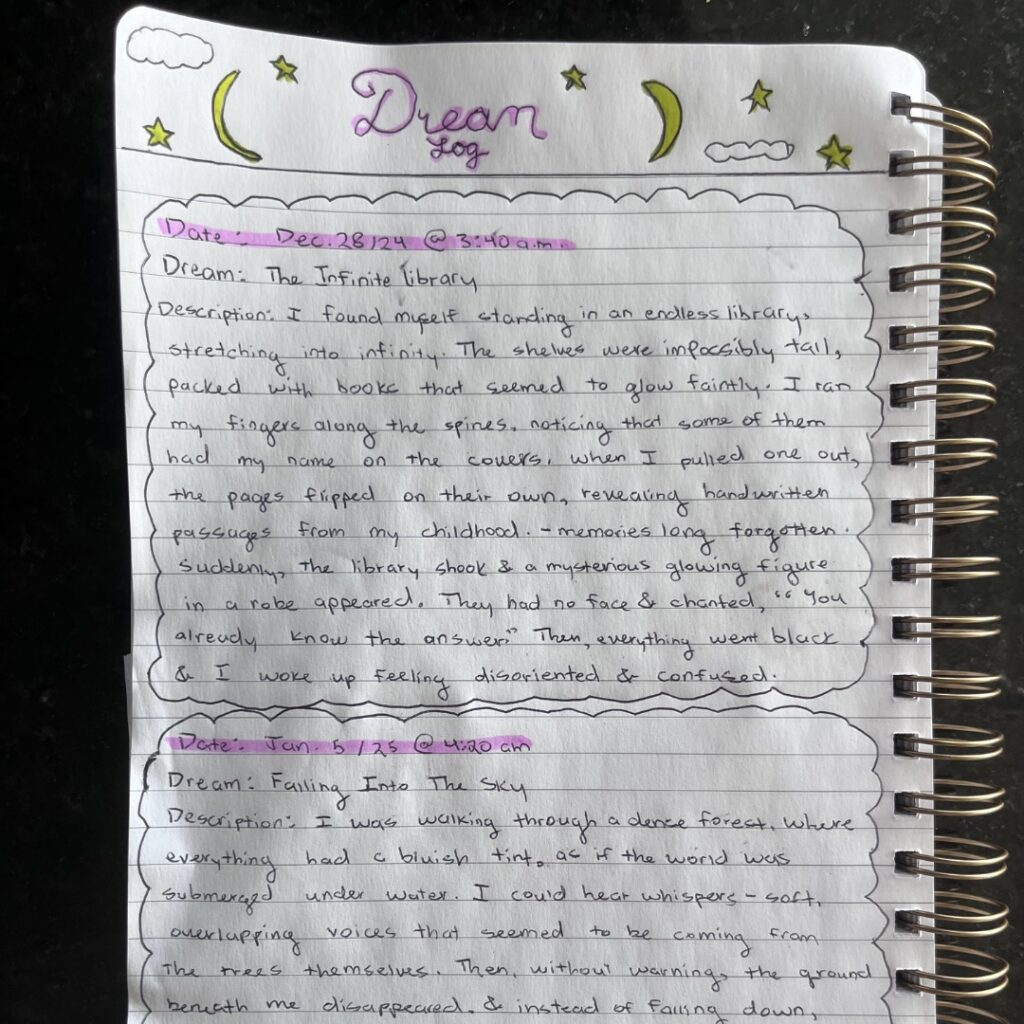 Dream
Log
Date: Dec. 28/24 @ 3:40 a.m.
Dream: The Infinite library
Description: I found myself standing in an endless library,
stretching into infinity. The shelves were impossibly tall,
packed with books that seemed to glow faintly. I ran
my fingers along the spines, noticing that some of them
had my name on the covers. When I pulled one out,
the pages flipped on their own, revealing handwritten
passages from my childhood. - memories long forgotten.
Suddenly, the library shook & a mysterious glowing figure
in a robe appeared. They had no face & chanted, "You
already know the answer." Then, everything went black
& I woke up feeling disoriented & confused.
Date: Jan. 5/25 @ 4:20 am
Dream: Falling Into The Sky
Description: I was walking through a dense forest, where
everything had a bluish tint, as if the world was
submerged under water. I could hear whispers - soft,
overlapping voices that seemed to be coming from
the trees themselves. Then, without warning, the ground
beneath me disappeared, & instead of falling down,